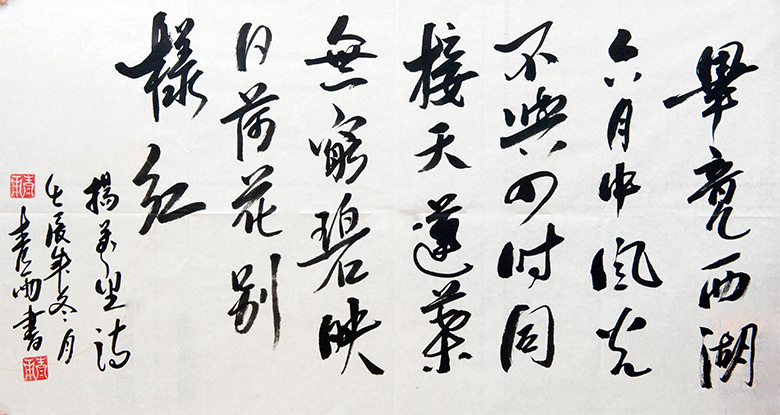 畢竟西湖
六月中風光
不與四时同
接天蓮葉
無窮碧映
日荷花别
樣紅
楊萬里詩
壬辰年冬月
青雨書